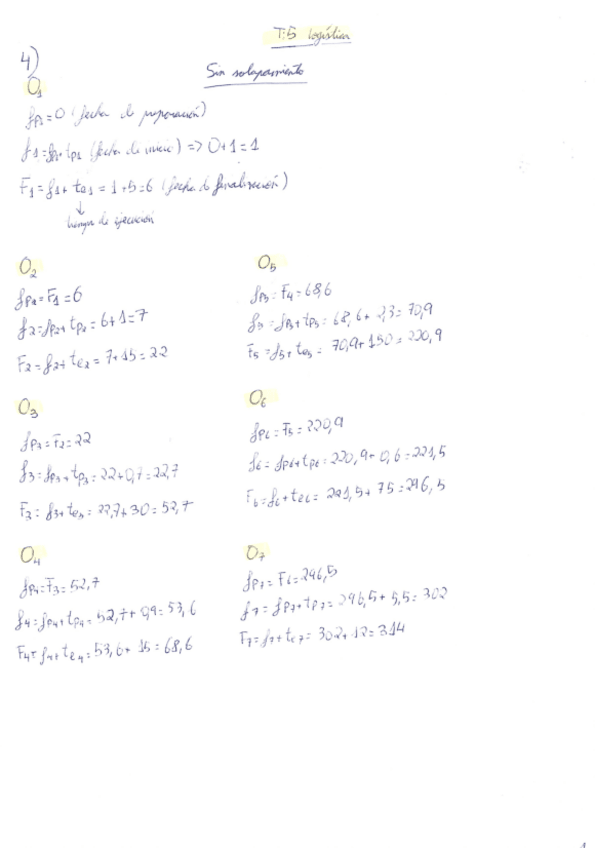 T:5 logística
4)
Sin solapamiento
O1
fp1 = 0 (fecha de preparación)
f1 = fp1 + tp1 (fecha de inicio) => 0+1 = 1
F1 = f1 + te1 = 1+5 = 6 (fecha de finalización)
↓
tiempo de ejecución
O2
fp2 = F1 = 6
f2 = fp2 + tp2 = 6+1 = 7
F2 = f2 + te2 = 7+15 = 22
O3
fp3 = F2 = 22
f3 = fp3 + tp3 = 22+0,7 = 22,7
F3 = f3 + te3 = 22,7+30 = 52,7
O4
fp4 = F3 = 52,7
f4 = fp4 + tp4 = 52,7 + 0,9 = 53,6
F4 = f4 + te4 = 53,6 + 15 = 68,6
O5
fp5 = F4 = 68,6
f5 = fp5 + tp5 = 68,6 + 2,3 = 70,9
F5 = f5 + te5 = 70,9 + 150 = 220,9
O6
fp6 = F5 = 220,9
f6 = fp6 + tp6 = 220,9 + 0,6 = 221,5
F6 = f6 + te6 = 221,5 + 75 = 296,5
O7
fp7 = F6 = 296,5
f7 = fp7 + tp7 = 296,5 + 5,5 = 302
F7 = f7 + te7 = 302 + 12 = 314
1